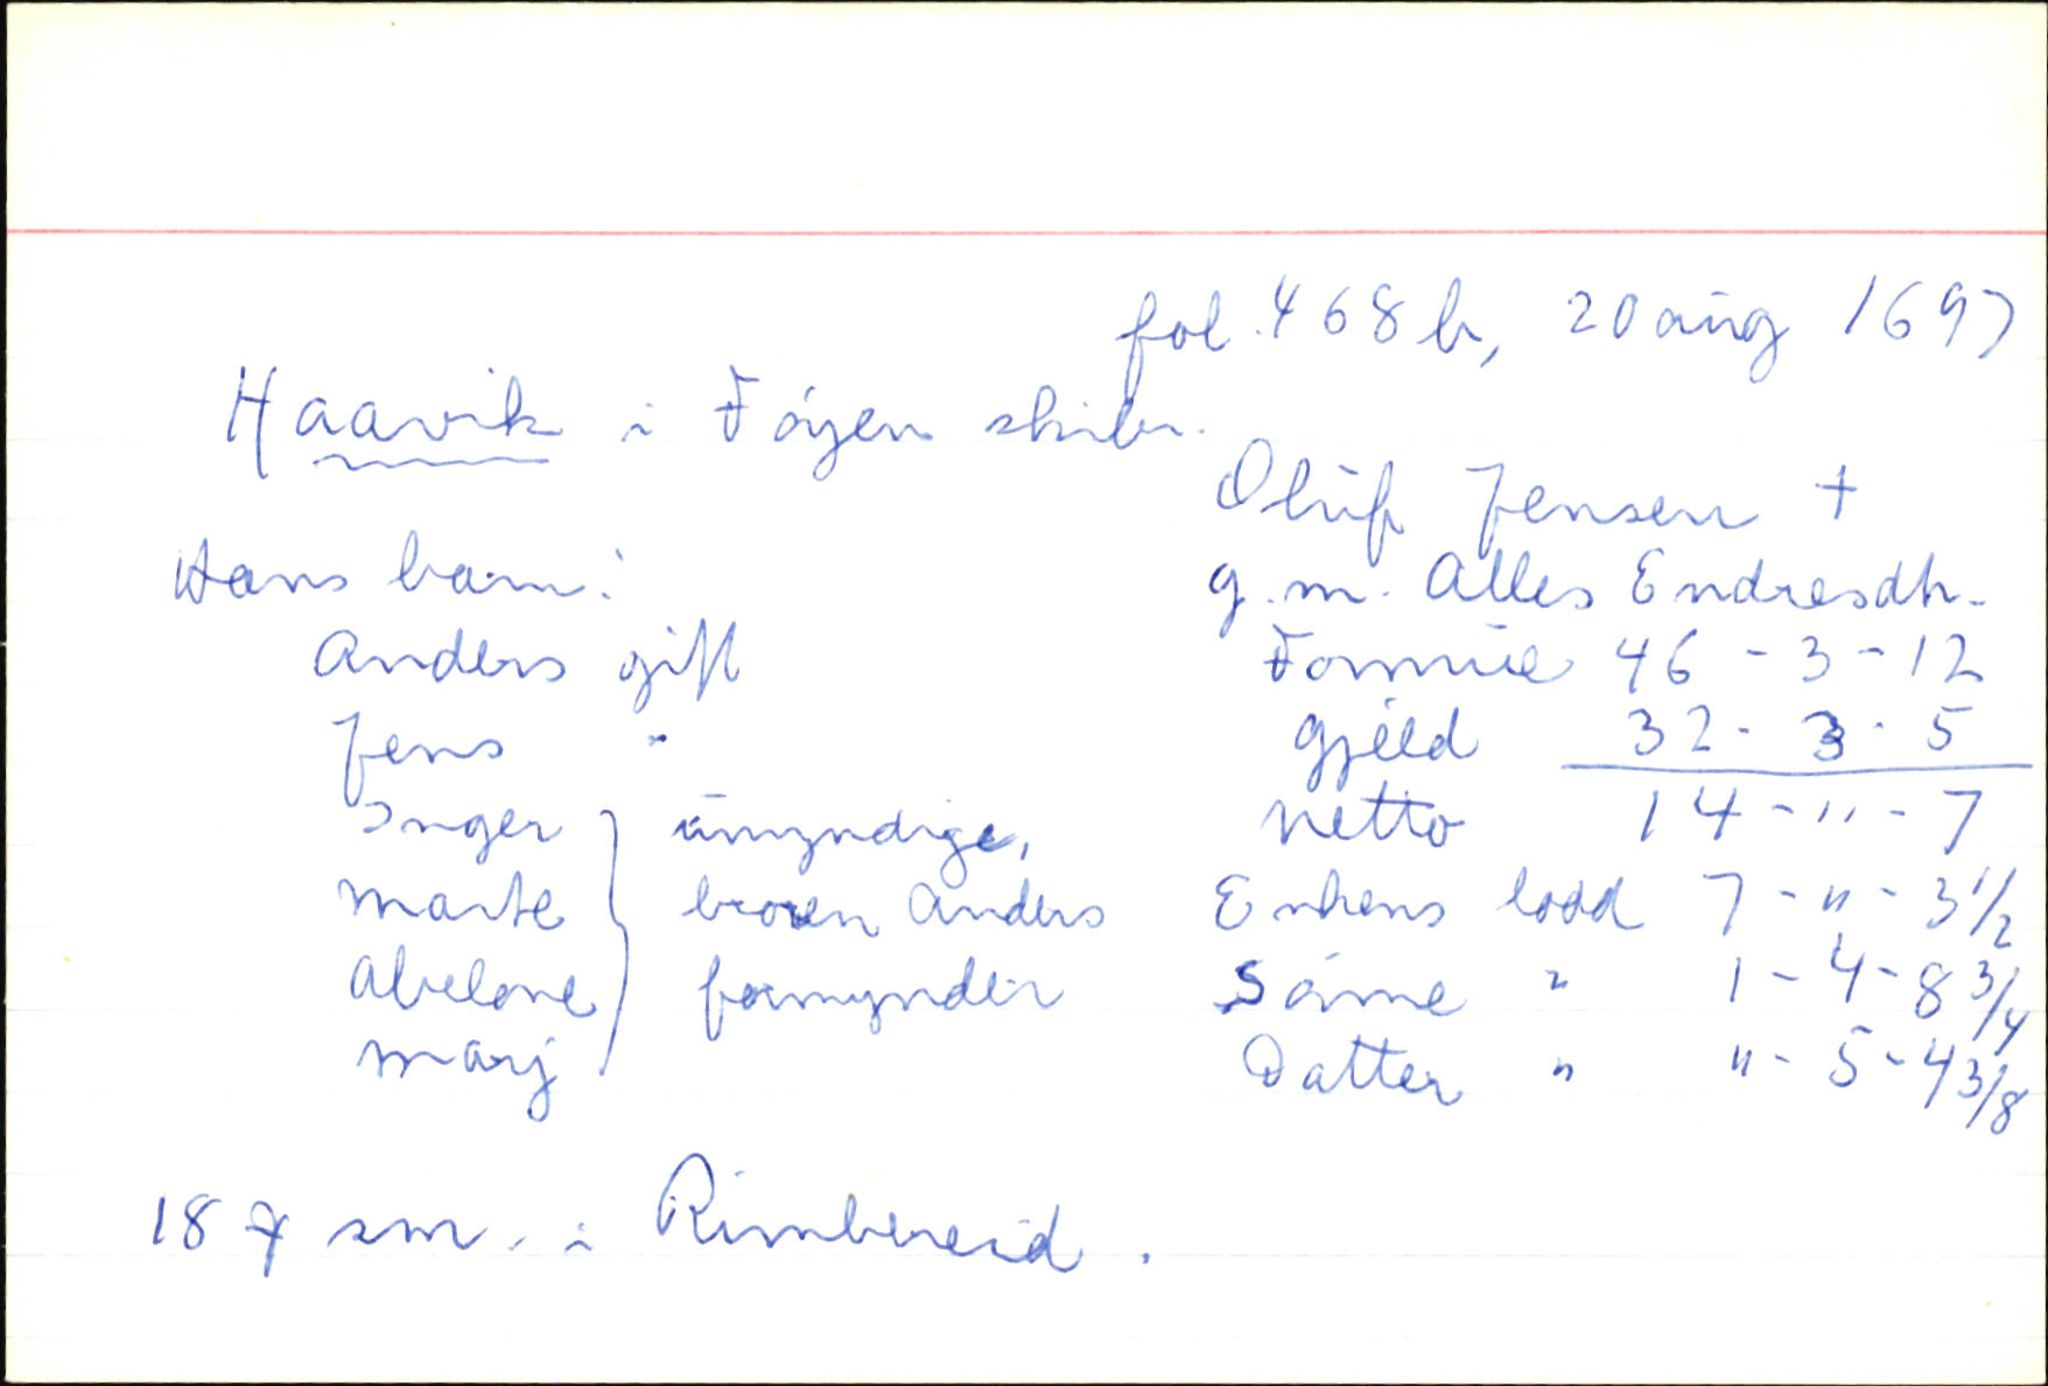 fol. 468 b, 20 aug 1697
Haavik i Føyen skibr.
Oluf Jensen †
Hans barn: g.m. Alles Endresdtr.
Anders gift Formue 46 - 3 - 12
Jens " Gjeld 32 - 3 - 5
Inger umyndige, Netto 14 - " - 7
Marte broren Anders Enkens lodd 7 - " - 3 1/2
Abelone formynder Sønne " 1 - 4 - 8 3/4
Marj Datter " " - 5 - 4 3/8
18 sm. i Rimbereid.